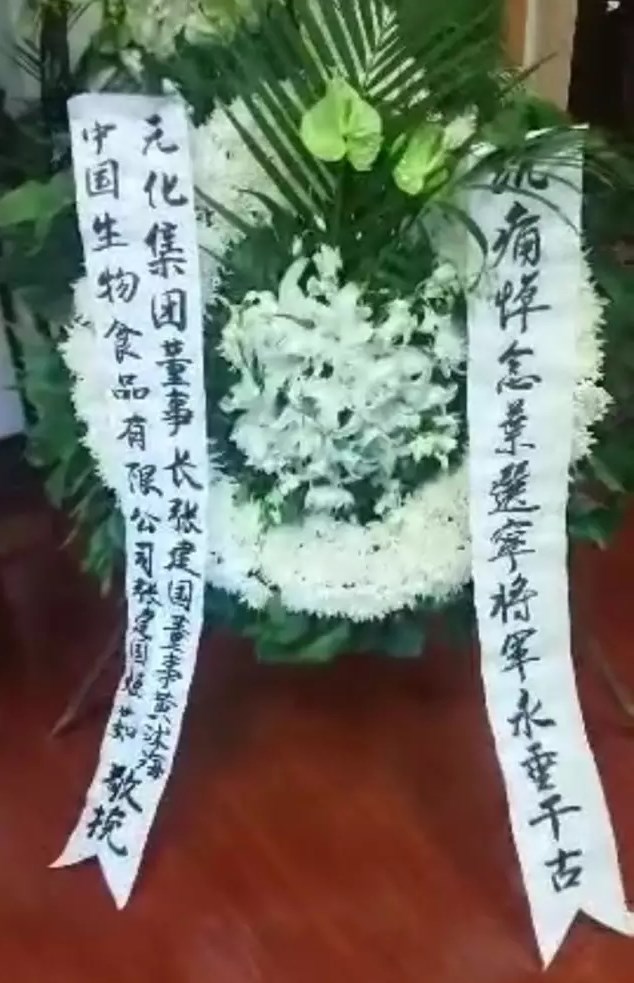 沉痛悼念葉選寧将軍永垂千古
元化集团董事长张建国董事黄沭海
中国生物食品有限公司张建国 茹
敬挽